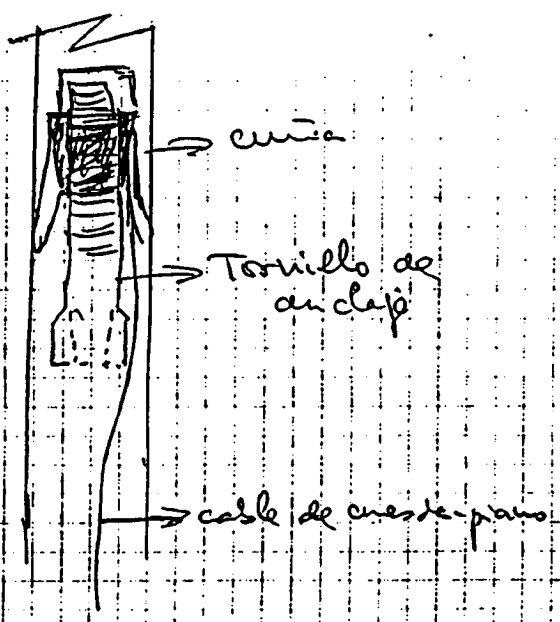 cuña
Tornillo de
anclaje
cable de cuerda-piano